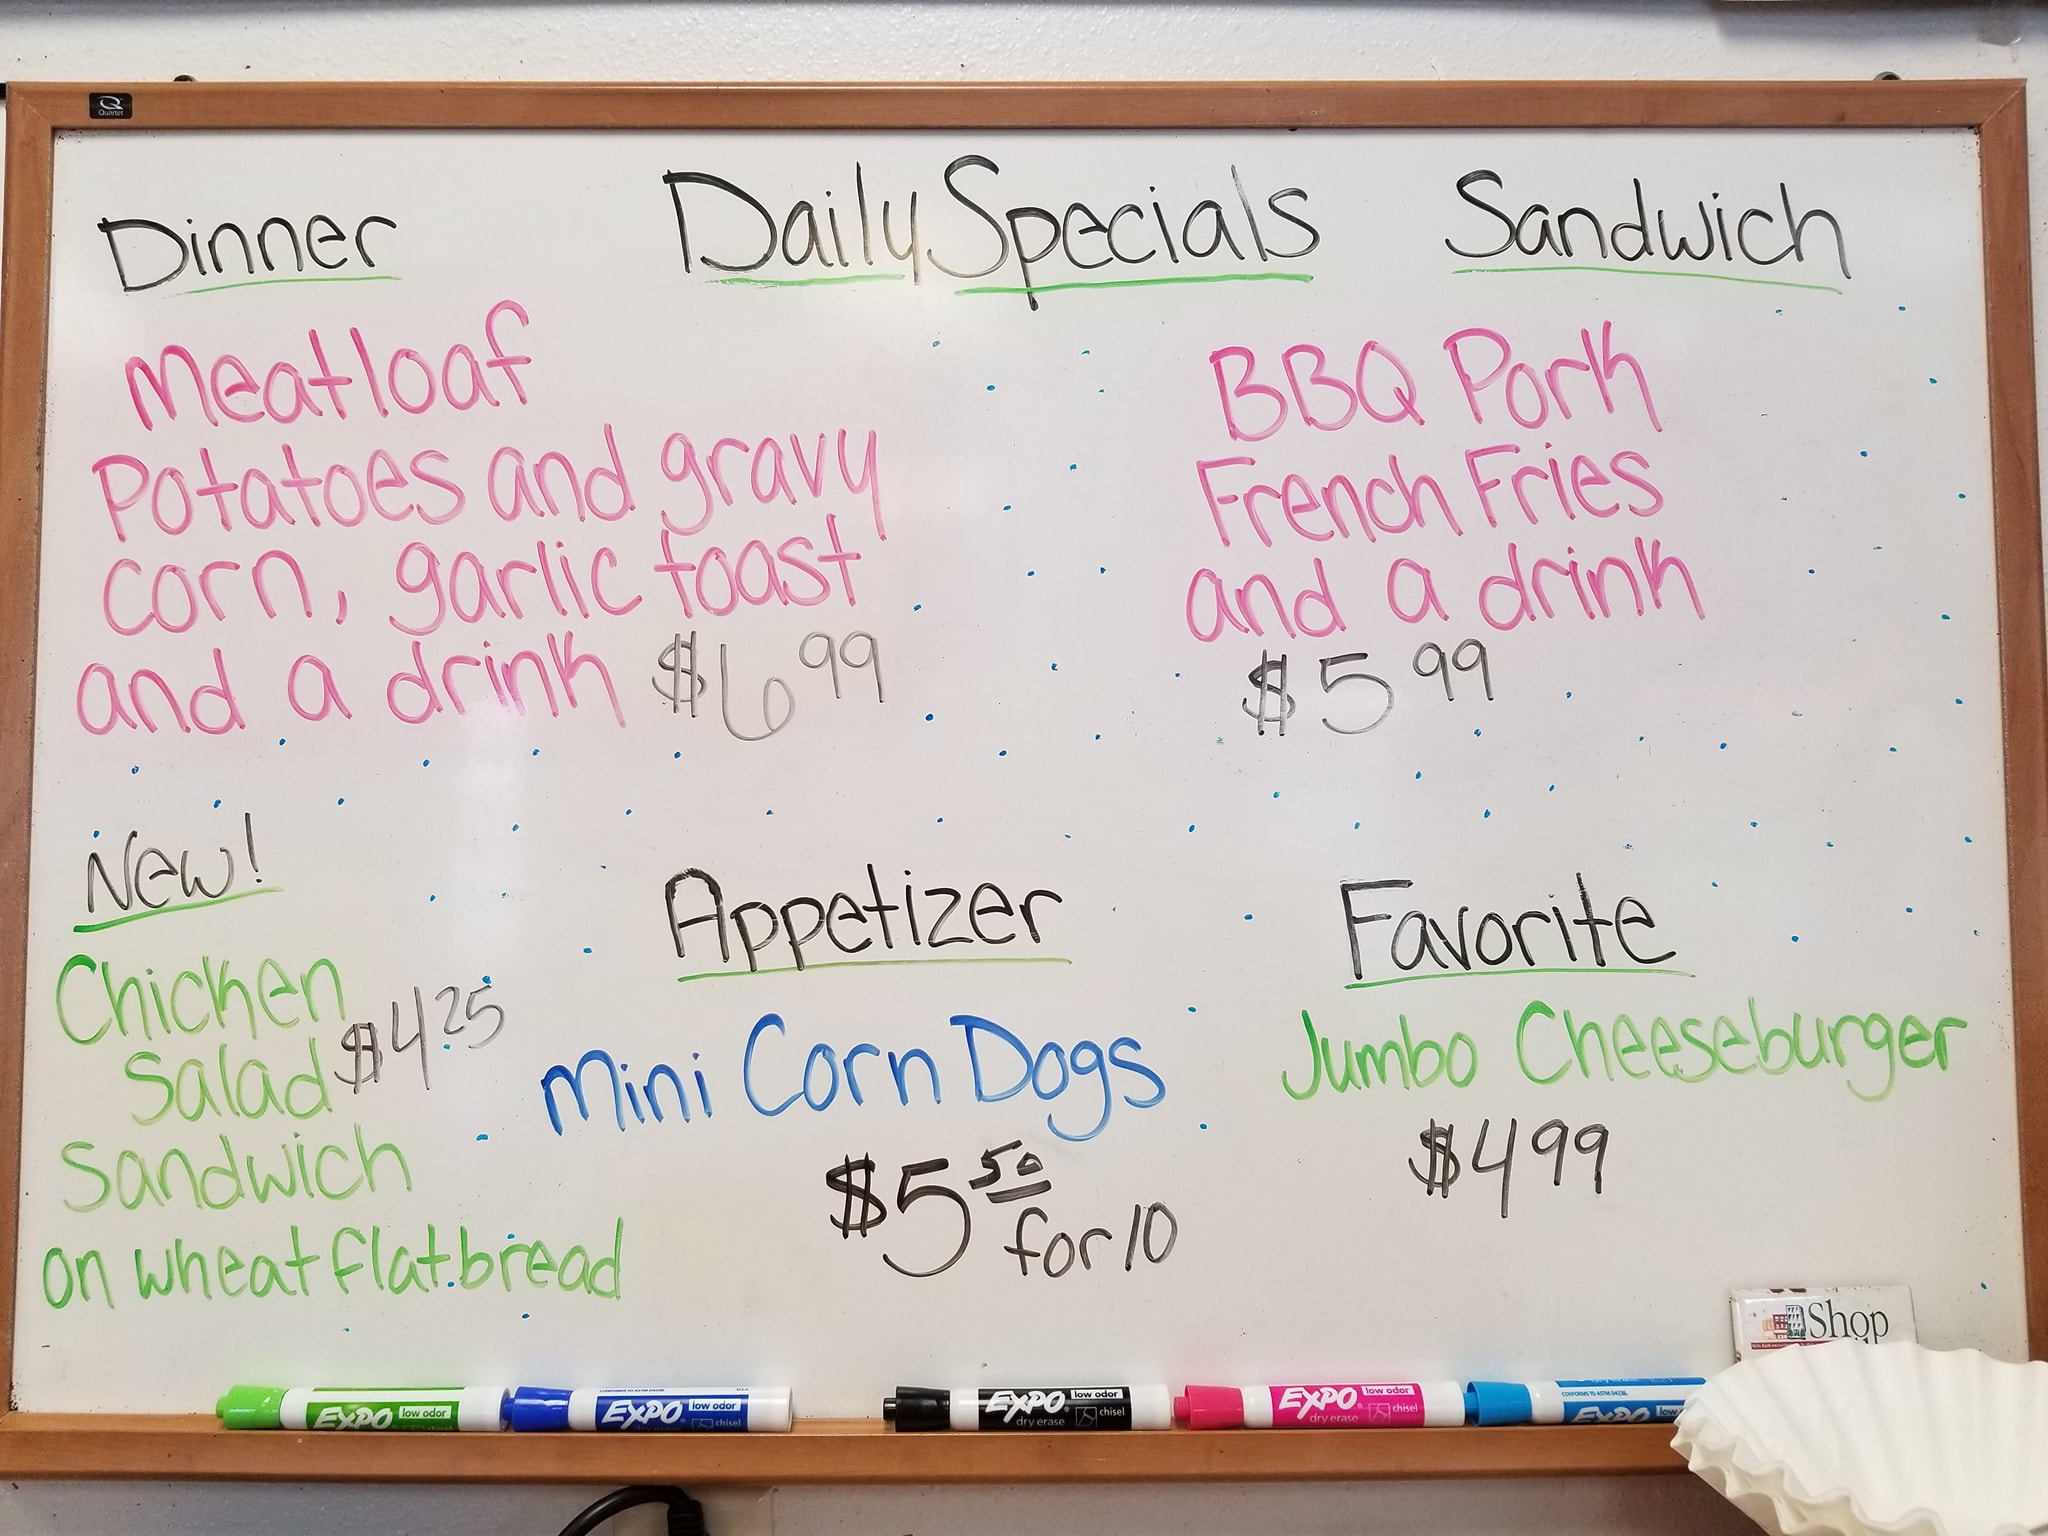 Quartet
Daily Specials
Dinner
Meatloaf
Potatoes and gravy
corn, garlic toast
and a drink $6.99
Sandwich
BBQ Pork
French Fries
and a drink
$5 99
New!
Chicken
Salad $4 25
Sandwich
on wheat flatbread
Appetizer
Mini Corn Dogs
$5 50
for 10
Favorite
Jumbo Cheeseburger
$4 99
Shop
EXPO low odor
EXPO low odor
chisel
EXPO low odor
dry erase chisel
EXPO low odor
dry erase chisel
CONFORMS TO ASTM D4236
EXPO low